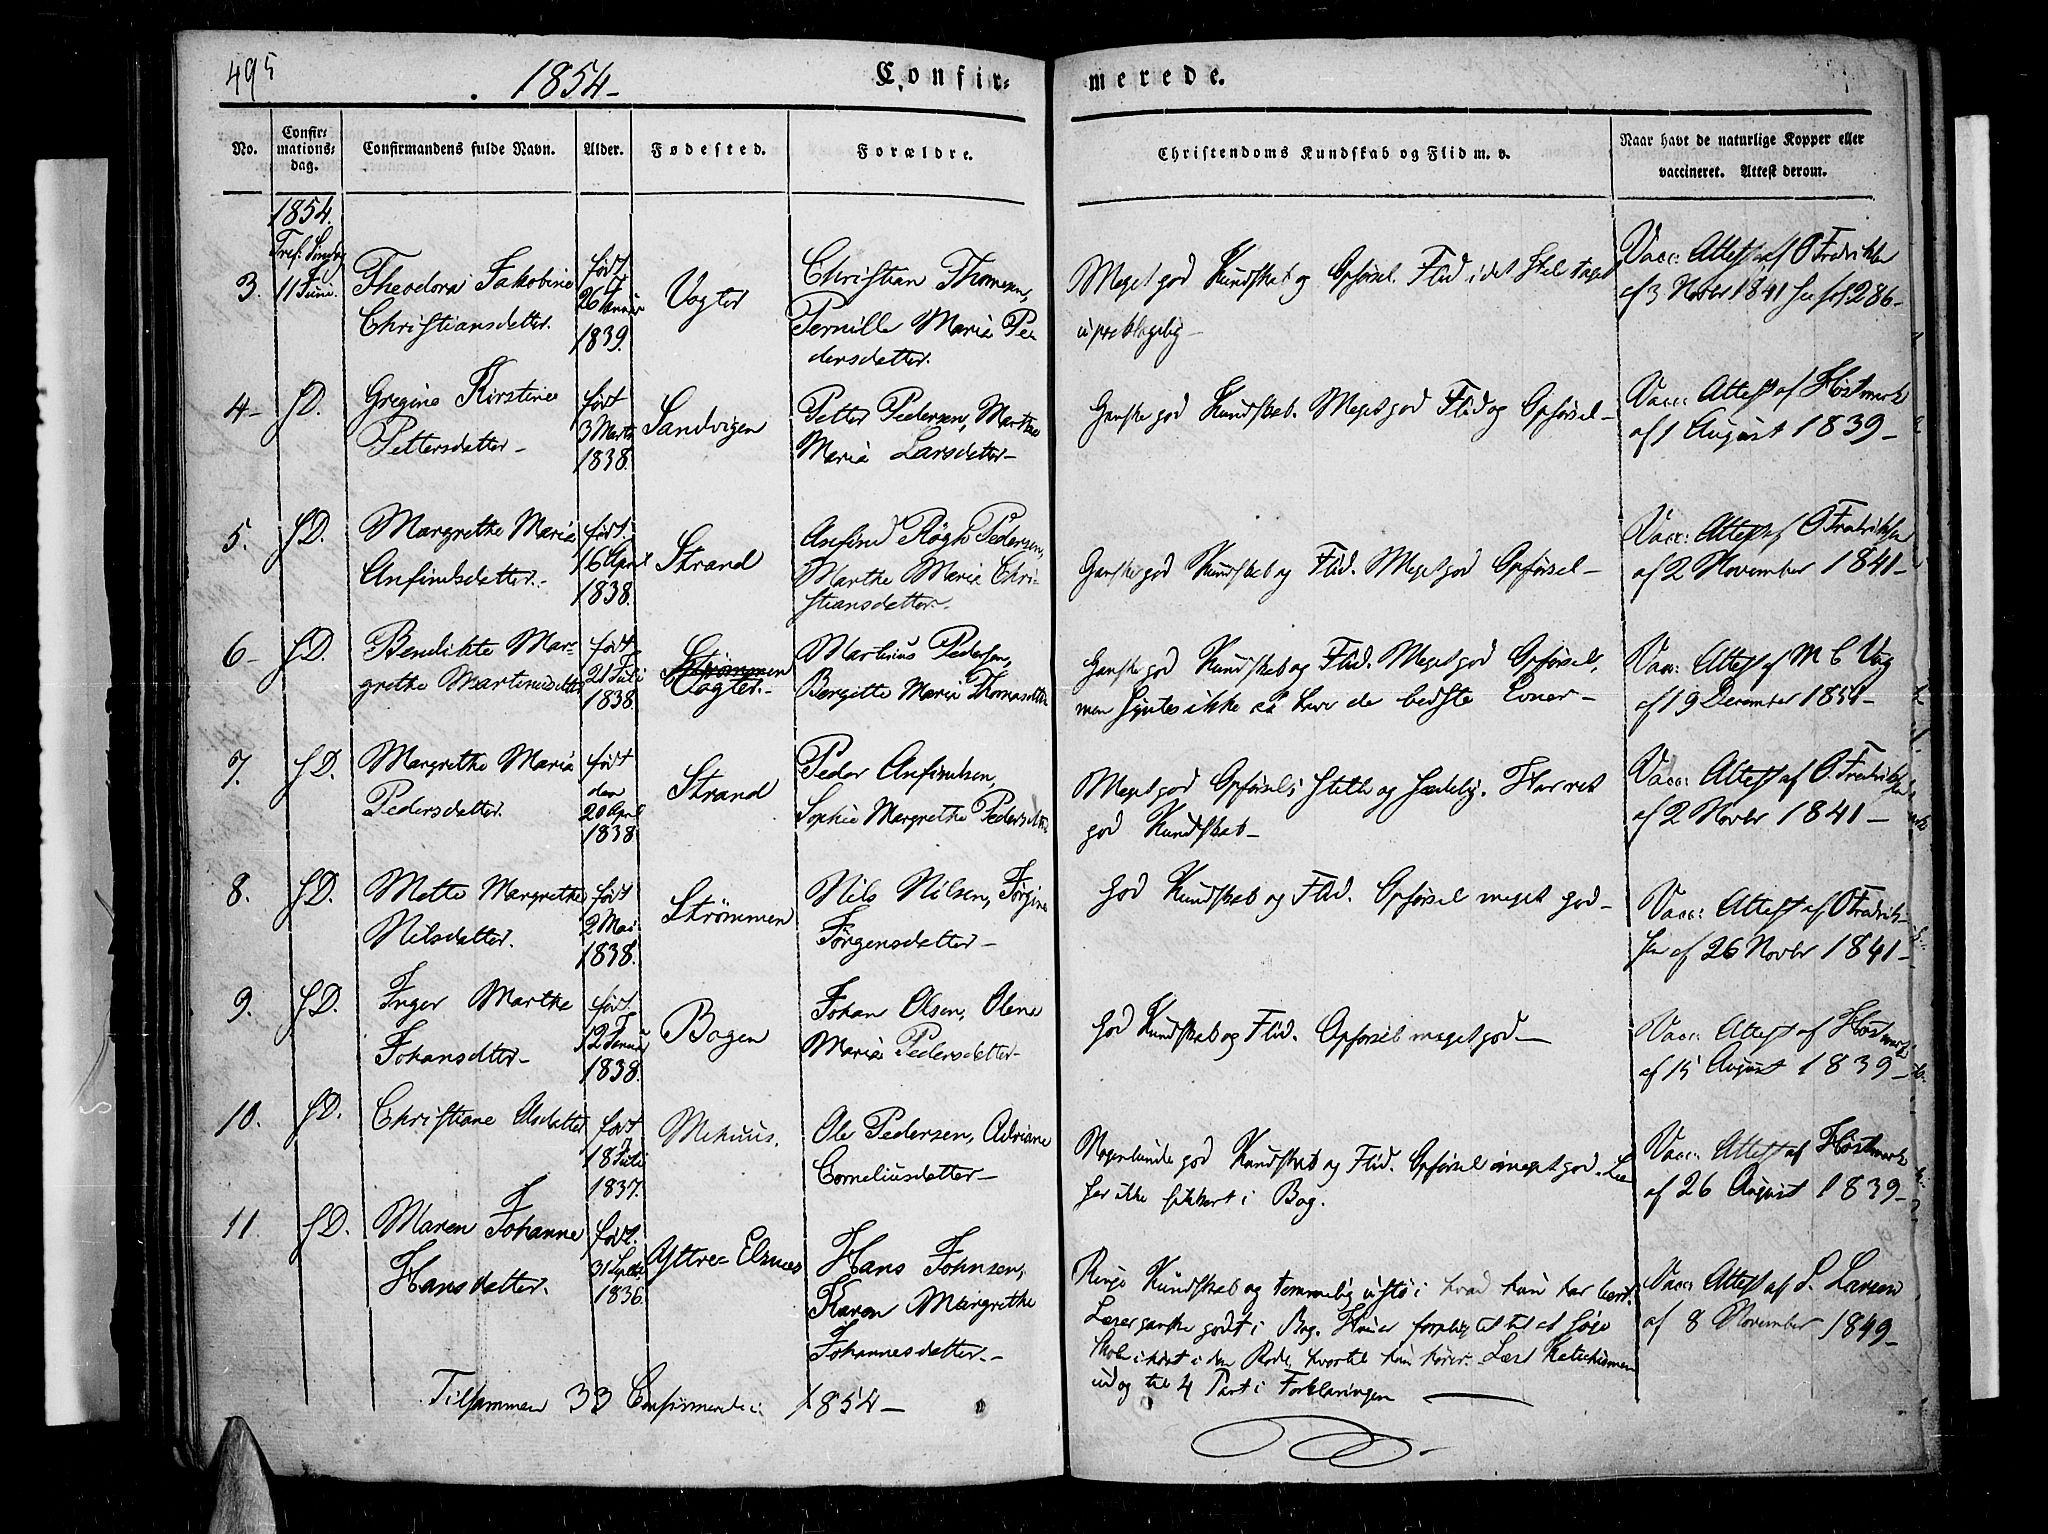 495
1854-
Confir-
merede.
No.
Confir-
mations-
dag.
Confirmandens fulde Navn.
Alder.
Fødested.
Forældre.
Christendoms Kundskab og Flid m. v.
Naar havt de naturlige Kopper eller
vaccineret. Attest derom.
1854.
Tref. Søndag
3.
11 Juni.
Theodora Jakobine
Christiansdetter.
født
26 Januar
1839.
Vagter
Christian Thomesen,
Pernille Maria Pe
dersdatter.
Meget god Kundskab og Opførsel. Flid i det Hele taget
upaaklagelig
Vacc: Attest af O Fredriksen
af 3 Novbr 1841 See fol. 286-
4-
S D.
Gregine Kirstine
Pettersdatter-
født
3 Marts
1838.
Sandvigen
Petter Pedersen, Marthe
Maria Larsdatter-
Ganske god Kundskab. Meget god Flid og Opførsel-
Vacc: Attest af Høstmark
af 1 August 1839-
5.
S D.
Margrethe Maria
Anfindsdatter.
født
16 April
1838.
Strand
Anfind Røgh Pedersen,
Marthe Maria Chri-
stiansdatter-
Ganske god Kundskab og Flid. Meget god Opførsel-
Vacc: Attest af O Fredriksen
af 2 November 1841-
6-
S D.
Bendikte Mar-
grethe Martinusdatter
født
21 Juli
1838.
Strømmen
Vagter.-
Martinus Pedersen,
Bergitte Maria Thomasdatter
Ganske god Kundskab og Flid. Meget god Opførsel,
men synes ikke at have de bedste Evner-
Vacc: Attest af M C Vog
af 19 December 1851-
7.
S D.
Margrethe Maria
Pedersdatter.
født
den
20 April
1838.
Strand
Peder Anfindsen,
Sophie Margrethe Pedersdatter
Meget god Opførsel; stille og sædelig. Har ret
god Kundskab-
Vacc: Attest af O. Fredriksen
af 2 Novbr 1841-
8.
S D.
Mette Margrethe
Nilsdatter.
født
2 Mai
1838.
Strømmen
Nils Nilsen, Jørgine
Jørgensdatter-
God Kundskab og Flid. Opførsel meget god-
Vacc: Attest af O Fredrik-
sen af 26 Novbr 1841-
9.
S D.
Inger Marthe
Johansdtter-
født
12 Januar
1838.
Bogen
Johan Olsen, Olene
Maria Pedersdatter-
God Kundskab og Flid. Opførsel meget god-
Vacc: Attest af Høstmark
af 15 August 1839-
10.
S D.
Christiane Olsdatter
født
18 Juli
1837.
Mehuus.
Ole Pedersen, Adriane
Corneliusdatter-
Nogenlunde god Kundskab og Flid. Opførsel meget god. Læ-
ser ikke sikkert i Bog.
Vacc: Attest af Høstmark
af 26 August 1839-
11.
S D.
Maren Johanne
Hansdatter.
født
31
1836.
Yttre Elvnes
Hans Johnsen,
Karen Margrethe
Johannesdatter.-
Ringe Kundskab og temmelig usto i hvad hun har lært.
Læser ganske godt i Bog. Hun er forpligtet til at søge
Skole i høst i den Rode, hvortil hun hører. Læst Katechismen
ud og til 4 Part i Forklaringen
Vacc: Attest af S. Larsen
af 8 November 1849-
Tilsammen 33 Confirmerede i 1854-